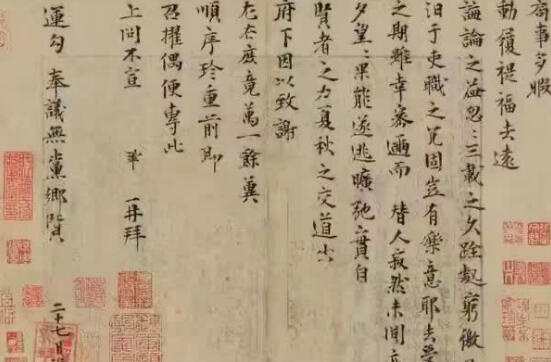 局事多暇
動履禔福去遠
誨論之益忽〻三載之久跧處窮徼
汩于吏職之冗固豈有樂意耶去受
之期雖幸密邇而替人寂然未聞
夕望〻果能遂逃曠弛實自
賢者之力夏秋之交道出
府下因以致謝
左右庶竟萬一餘冀
順序珍重前即
召擢偶便專此
上問不宣 鞏 再拜
運勾奉議無黨鄉賢 二十七日